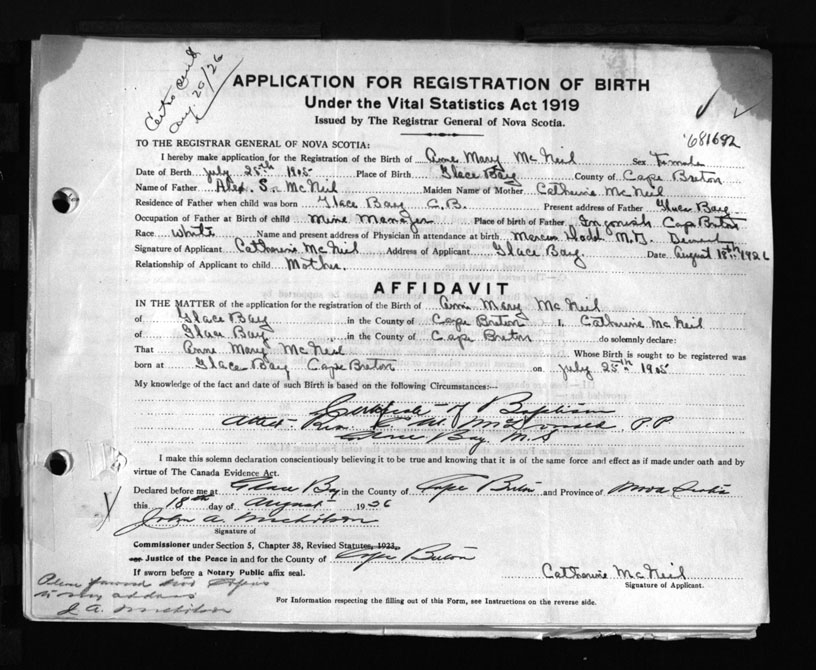 Aug. 20/26
APPLICATION FOR REGISTRATION OF BIRTH
Under the Vital Statistics Act 1919
Issued by The Registrar General of Nova Scotia.
681692
TO THE REGISTRAR GENERAL OF NOVA SCOTIA:
I hereby make application for the Registration of the Birth of Anne Mary McNeil Sex Female
Date of Birth July 25th 1905 Place of Birth Glace Bay County of Cape Breton
Name of Father Alex. S. McNeil Maiden Name of Mother Catherine McNeil
Residence of Father when child was born Glace Bay C.B. Present address of Father Glace Bay
Occupation of Father at Birth of child Mine Manager Place of birth of Father Ingonish Cape Breton
Race White Name and present address of Physician in attendance at birth Marcus Dodd M.D.
Signature of Applicant Catherine McNeil Address of Applicant Glace Bay. Date August 18th 1926
Relationship of Applicant to child Mother.
AFFIDAVIT
IN THE MATTER of the application for the registration of the Birth of Anne Mary McNeil
of Glace Bay in the County of Cape Breton I, Catherine McNeil
of Glace Bay in the County of Cape Breton do solemnly declare:
That Anne Mary McNeil Whose Birth is sought to be registered was
born at Glace Bay Cape Breton on July 25th 1905
My knowledge of the fact and date of such Birth is based on the following Circumstances:—
Certificate of Baptism
Attest McDonald P.P.
Bay N.S
I make this solemn declaration conscientiously believing it to be true and knowing that it is of the same force and effect as if made under oath and by
virtue of The Canada Evidence Act.
Declared before me at Glace Bay in the County of Cape Breton and Province of Nova Scotia
this 18th day of August 1926
John A. Nicholson
Signature of
Commissioner under Section 5, Chapter 38, Revised Statutes, 1923,
or Justice of the Peace in and for the County of Cape Breton
If sworn before a Notary Public affix seal.
Catherine McNeil
Signature of Applicant.
Please forward
to my address
J. A. Nicholson
For Information respecting the filling out of this Form, see Instructions on the reverse side.